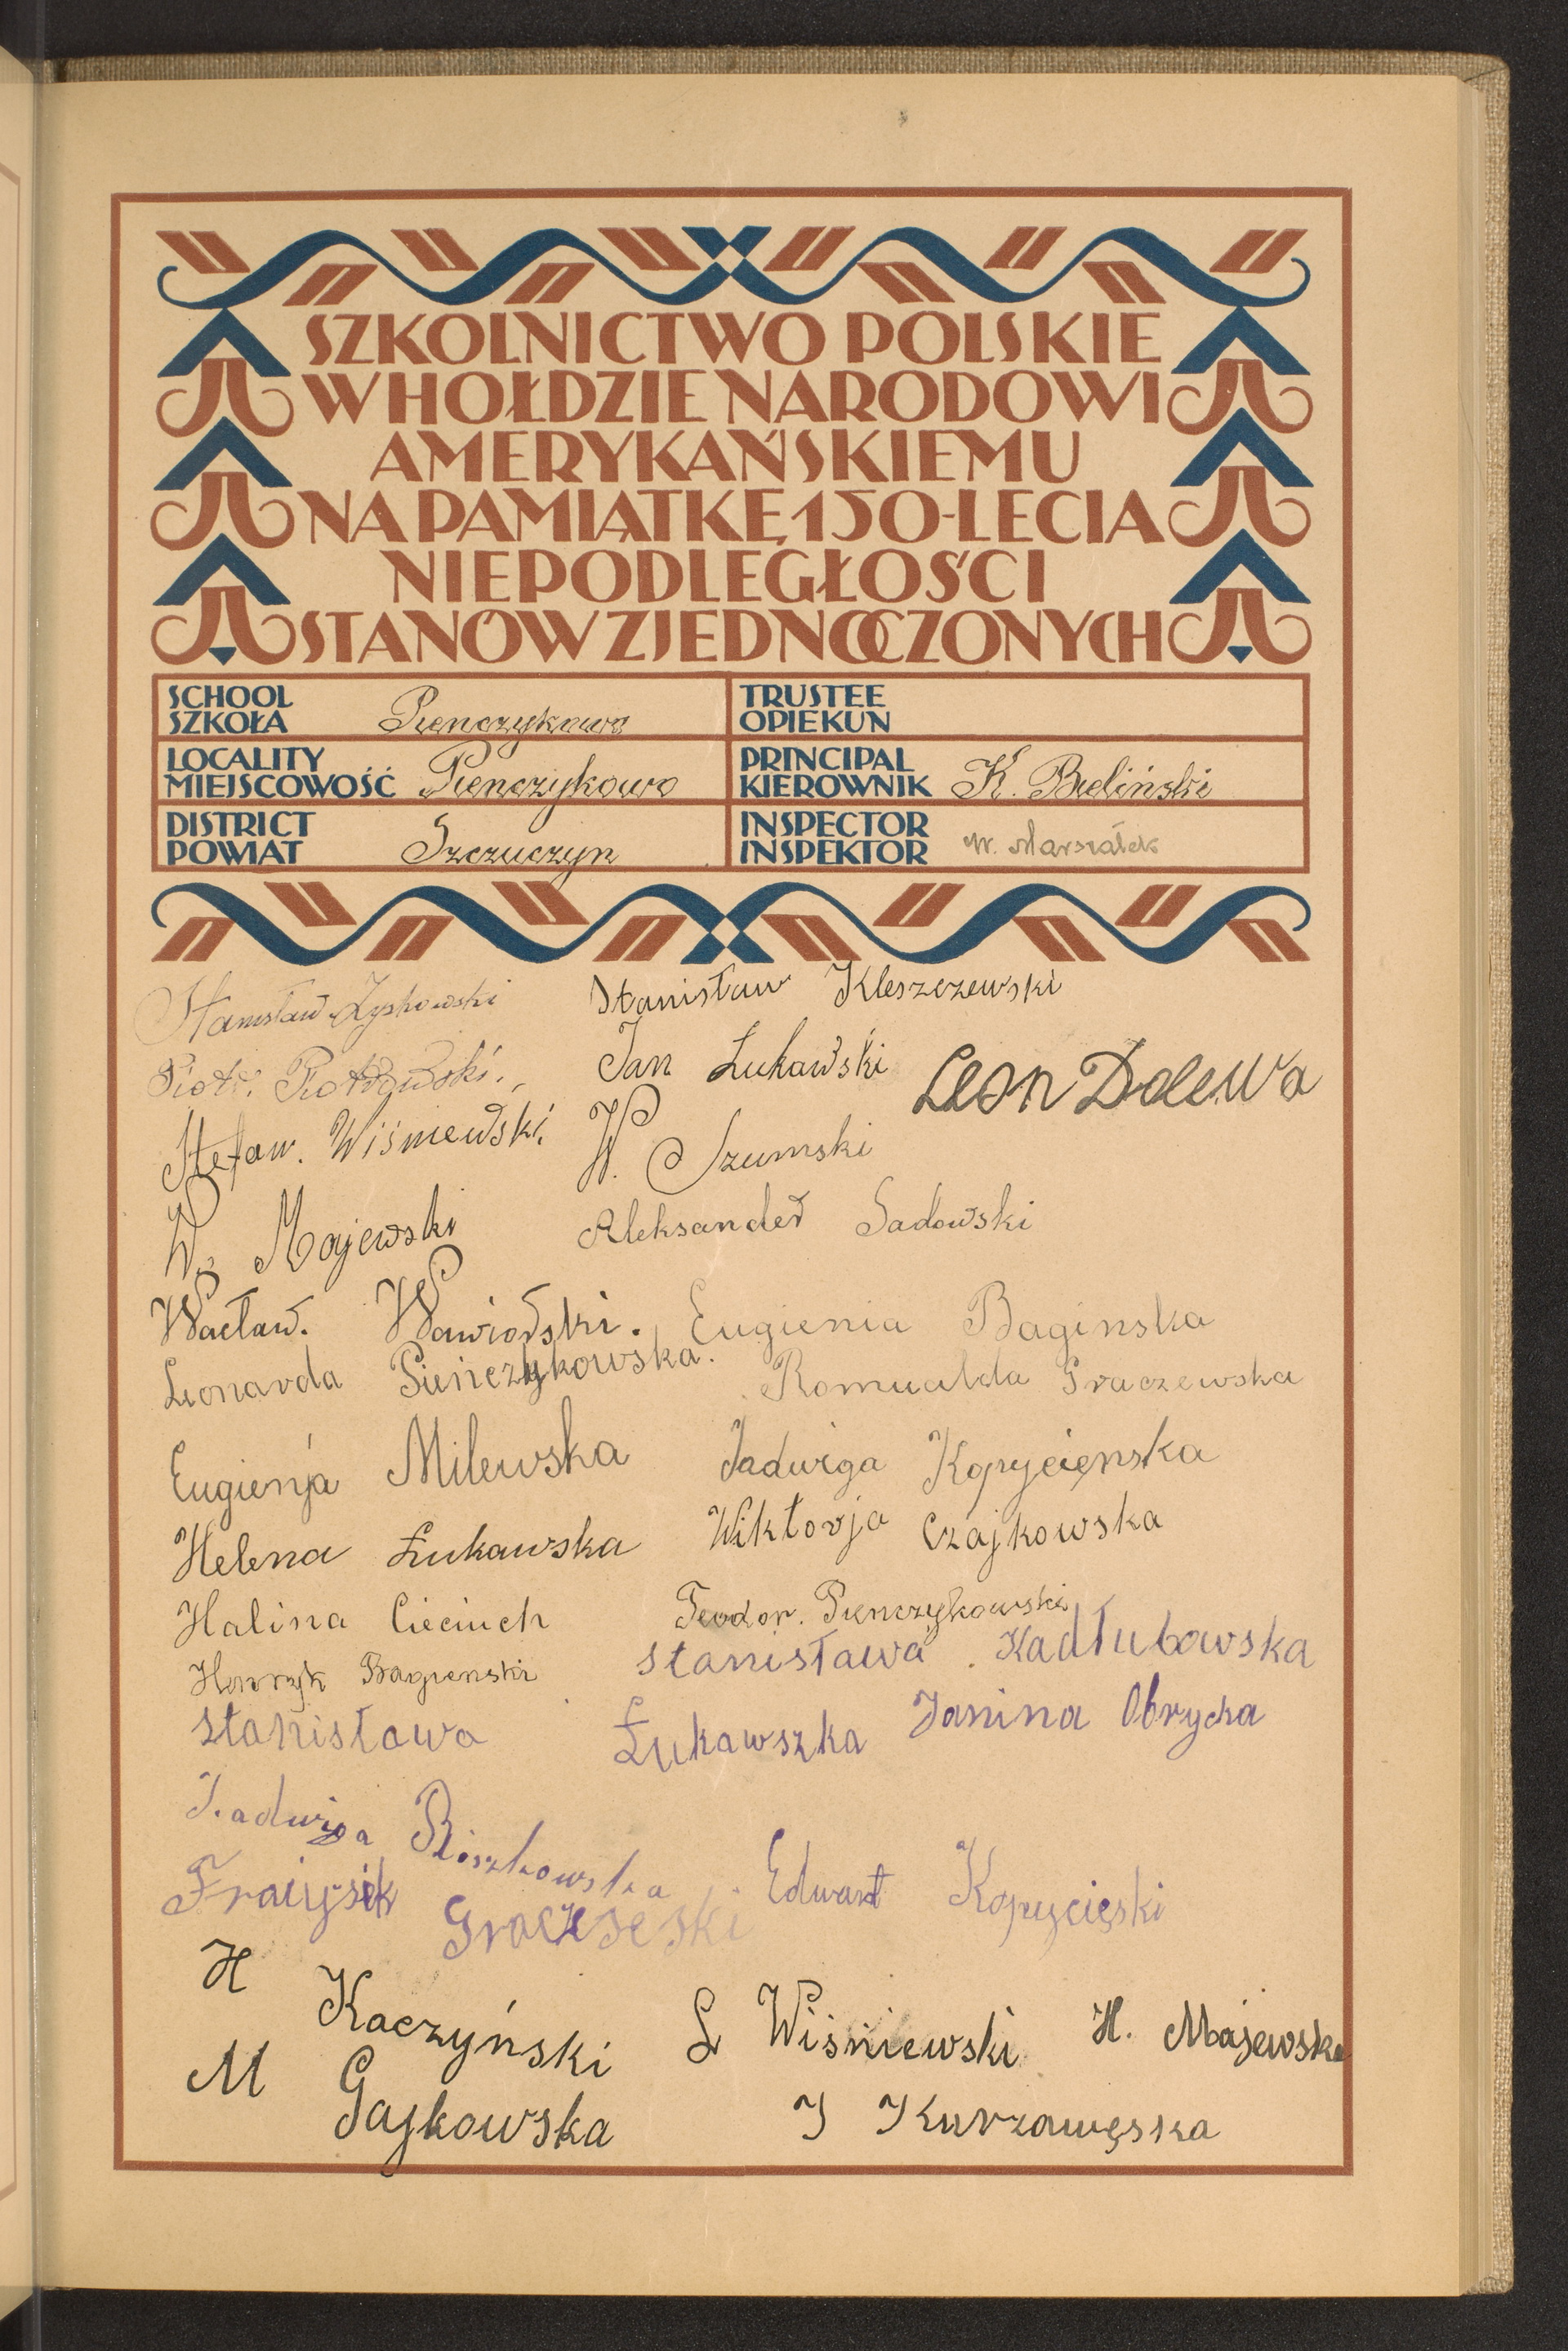 SZKOLNICTWO POLSKIE
W HOŁDZIE NARODOWI
AMERYKAŃSKIEMU
NA PAMIĄTKĘ 150-LECIA
NIEPODLEGŁOŚCI
STANÓW ZJEDNOCZONYCH
SCHOOL
SZKOŁA Pienczykowo
TRUSTEE
OPIEKUN
LOCALITY
MIEJSCOWOŚĆ Pienczykowo
PRINCIPAL
KIEROWNIK K. Bieliński
DISTRICT
POWIAT Szczuczyn
INSPECTOR
INSPEKTOR W. Marszałek
Stanisław Zyskowski Stanisław Kleszczewski
Piotr. Piotrowski. Jan Łukawski Leon Dolewa
Stefan. Wiśniewski W. Szumski
W. Majewski Aleksander Sadowski
Wacław. Wawiorski. Eugienia Baginska
Leonarda Pieńczykowska. Romualda Graczewska
Eugienja Milewska Jadwiga Kopycienska
Helena Łukawska Wiktorja Czajkowska
Halina Cieciuch Teodor. Pienczykowski
Henryk Bagienski Stanisława Kadłubowska
Stanisława Łukawszka Janina Obrycka
Jadwiga Roszkowska Edward Kopycięski
Graczeski
H Kaczyński L Wiśniewski H. Majewska
M Gajkowska J Kurzawęska